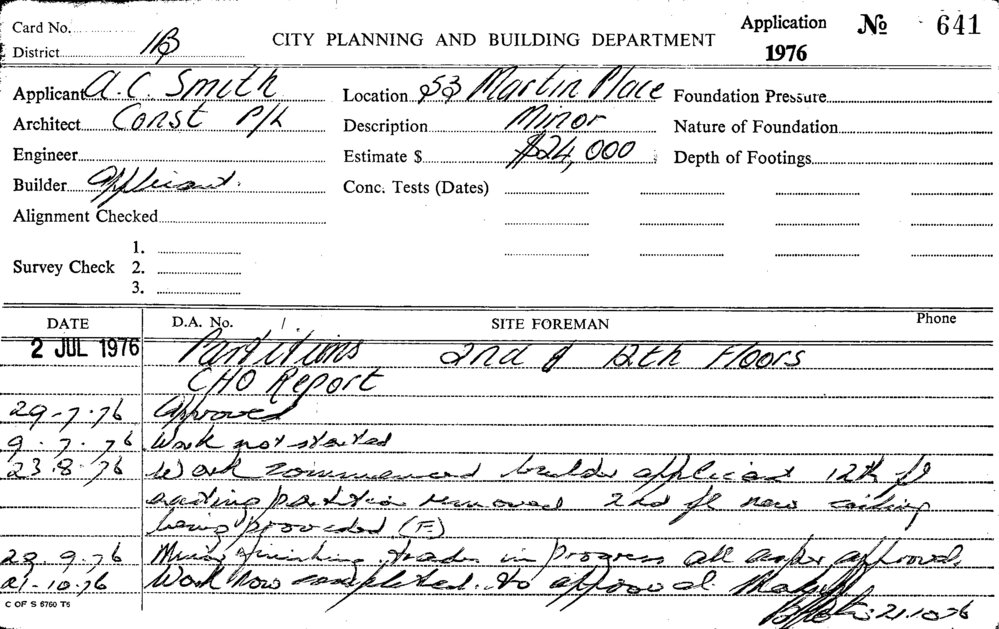 Card No.
District HB
CITY PLANNING AND BUILDING DEPARTMENT
Application
1976
№ 641
Applicant A.C. Smith
Location 53 Martin Place
Foundation Pressure
Architect Const P/L
Description Minor
Nature of Foundation
Engineer
Estimate $ $24,000
Depth of Footings
Builder Applicant.
Conc. Tests (Dates)
Alignment Checked
Survey Check
1.
2.
3.
DATE
D.A. No.
SITE FOREMAN
Phone
2 JUL 1976 Partitions 2nd & 12th Floors
CHO Report
29-7-76 Approved
9.7.76 Work not started
23.8.76 Work commenced builder applicant 12th fl
existing partition removed 2nd fl new ceiling
being provided (F)
23.9.76 Minor finishing trades in progress all as per approval.
21-10-76 Work now completed to approval
21.10.76
C OF S 6760 T5